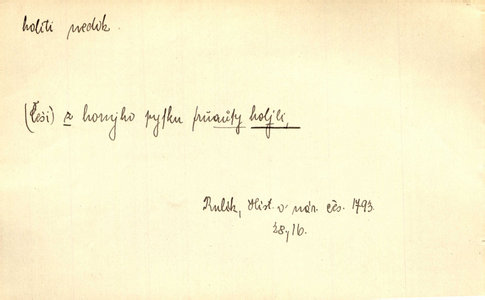 holiti nedok.
(Češi) z hornjho pysku frňausy holjli,
Rulík, Hist. o nár. čes. 1793.
28, 16.